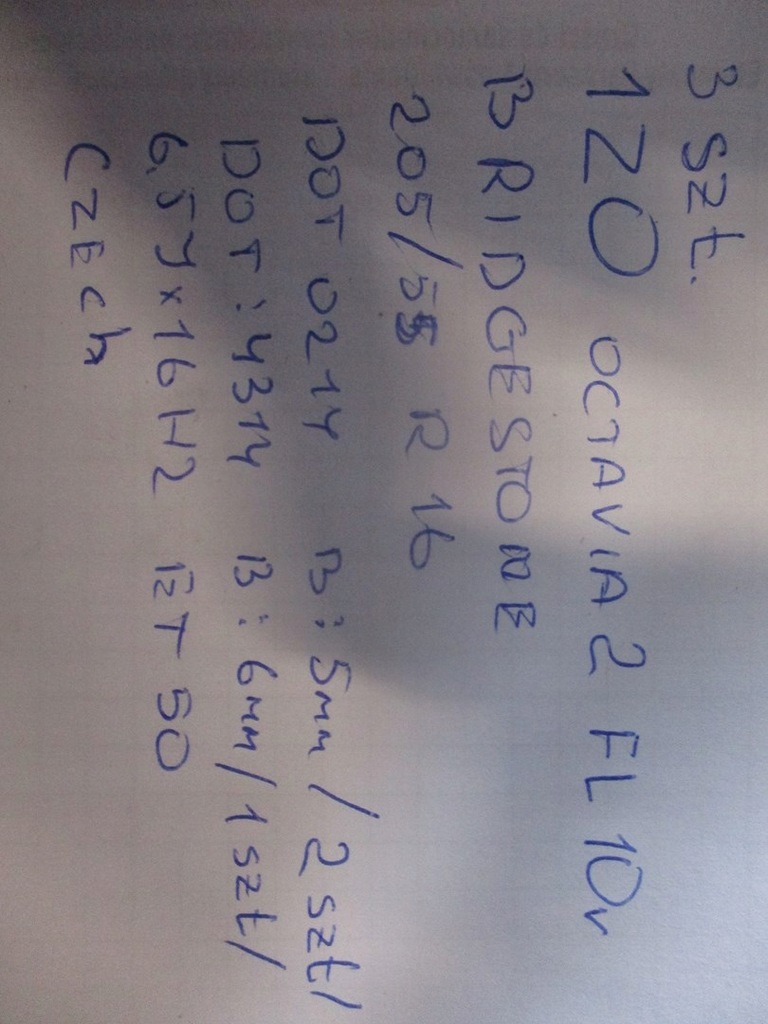 3 szt.
1ZO OCTAVIA 2 FL 10r
BRIDGESTONE
205/55 R 16
DOT 0214 B: 5mm / 2 szt/
DOT: 4314 B: 6mm / 1 szt/
6,5J x 16 H2 ET 50
CZECh